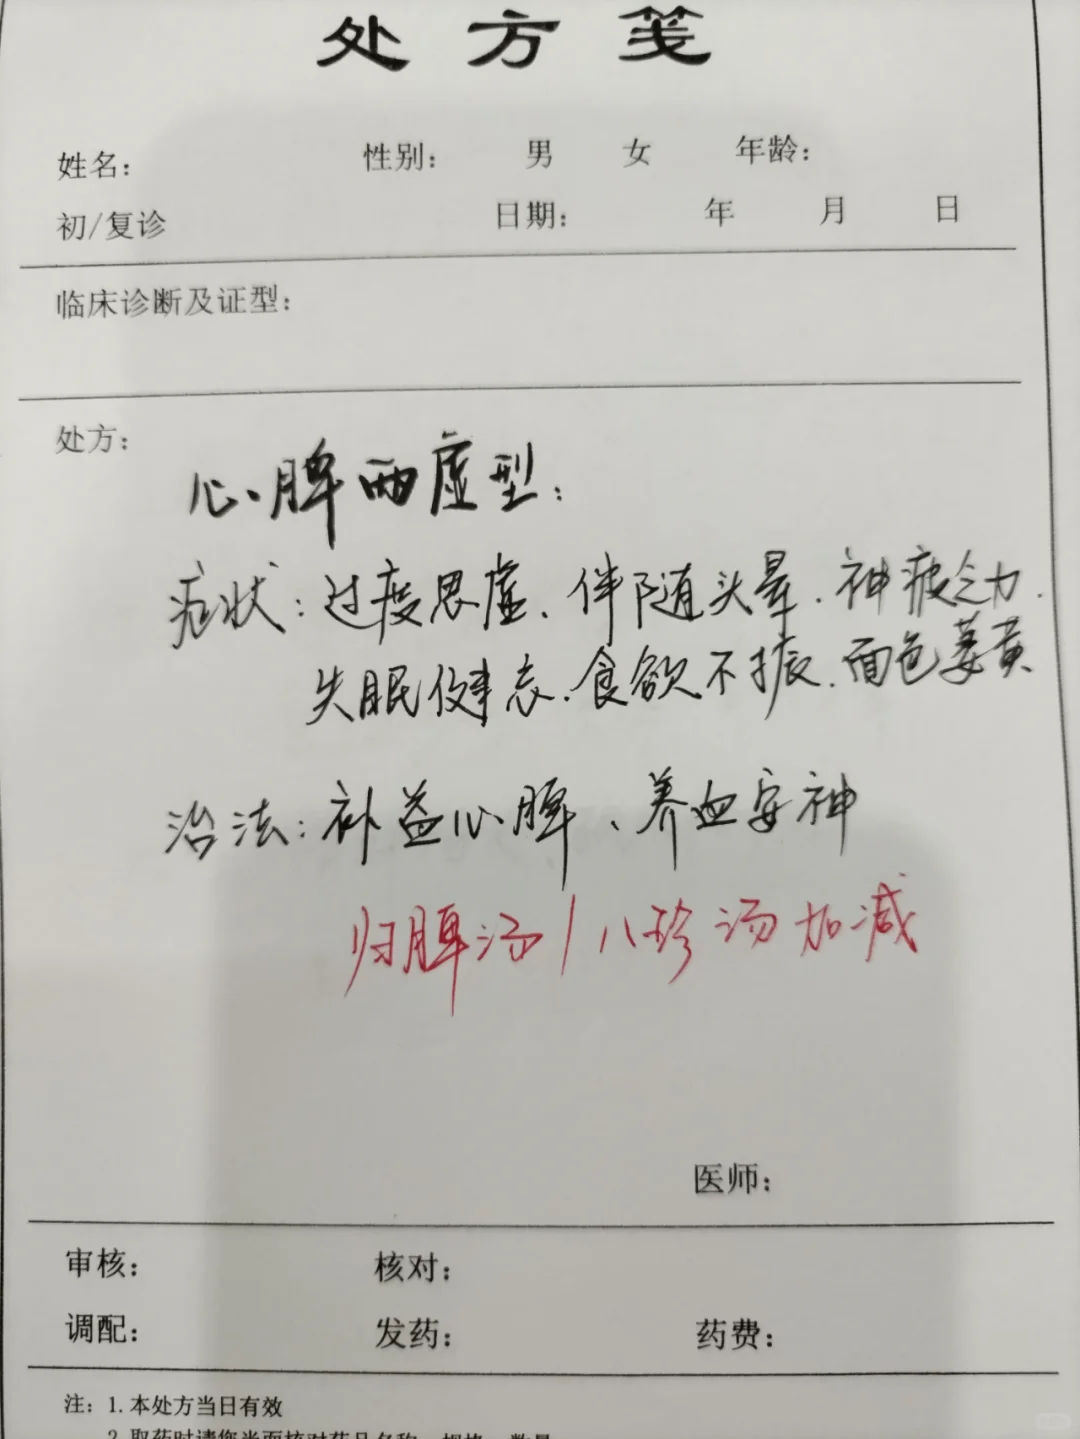 处方笺
姓名： 性别： 男 女 年龄：
初/复诊 日期： 年 月 日
临床诊断及证型：
处方：
心脾两虚型：
症状：过度思虑、伴随头晕、神疲乏力、
失眠健忘、食欲不振、面色萎黄
治法：补益心脾、养血安神
归脾汤/八珍汤加减
医师：
审核： 核对：
调配： 发药： 药费：
注：1.本处方当日有效
2.取药时请您当面核对药品名称、规格、数量